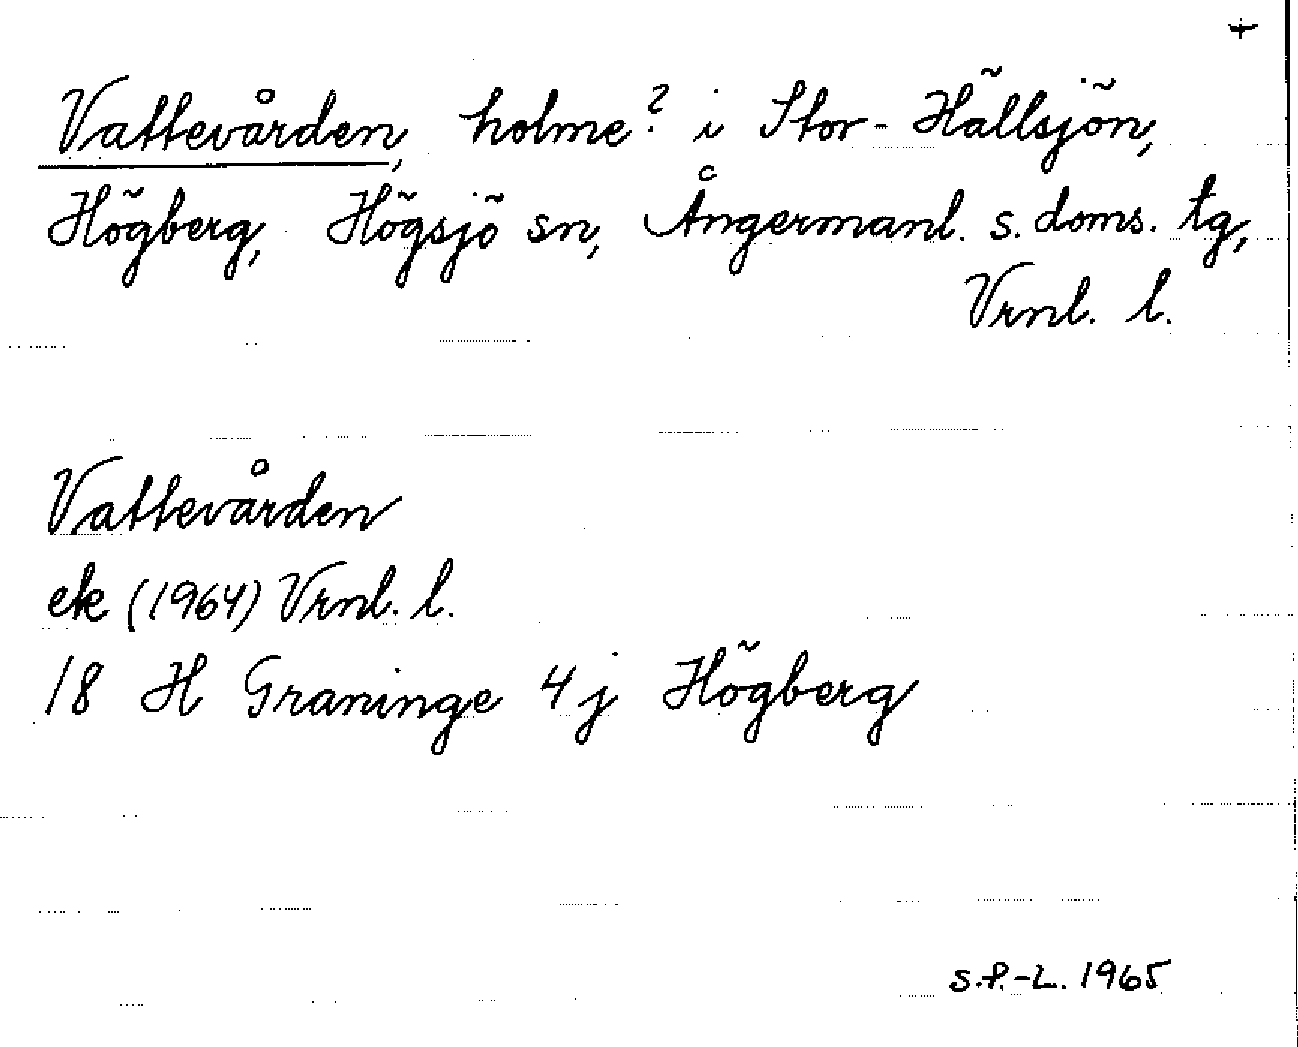 Vattevården, holme? i Stor-Hällsjön,
Högberg, Högsjö sn, Ångermanl. s. doms. tg,
Vrnl. l.
Vattevården
ek (1964) Vrnl. l.
18 H Graninge 4j Högberg
S.P.-L. 1965